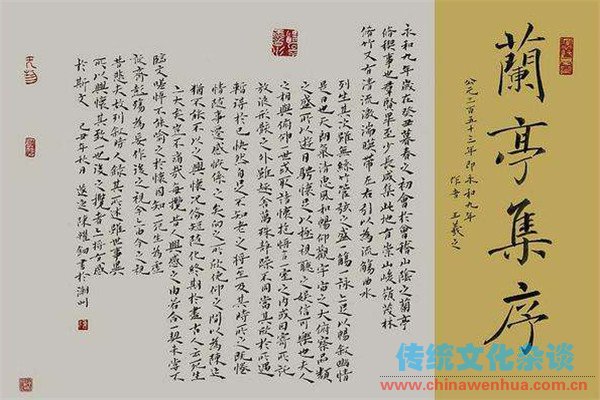 蘭亭集序
公元三百五十三年即永和九年
作者 王羲之
永和九年歲在癸丑暮春之初會於會稽山陰之蘭亭
脩稧事也群賢畢至少長咸集此地有崇山峻領茂林
脩竹又有清流激湍暎帶左右引以為流觴曲水
列坐其次雖無絲竹管弦之盛一觴一詠亦足以暢敘幽情
是日也天朗氣清惠風和暢仰觀宇宙之大俯察品類
之盛所以遊目騁懷足以極視聽之娛信可樂也夫人
之相與俯仰一世或取諸懷抱悟言一室之內或因寄所託
放浪形骸之外雖趣舍萬殊靜躁不同當其欣於所遇
暫得於己快然自足不知老之將至及其所之既惓
情隨事遷感慨係之矣向之所欣俛仰之間以為陳迹
猶不能不以之興懷況脩短隨化終期於盡古人云死生
亦大矣豈不痛哉每攬昔人興感之由若合一契未嘗不
臨文嗟悼不能喻之於懷固知一死生為虛
誕齊彭殤為妄作後之視今亦由今之視
昔悲夫故列敘時人錄其所述雖世事異
所以興懷其致一也後之攬者亦將有感
於斯文 秋日 陳耀 書於潮州
传统文化杂谈
www.chinawenhua.com.cn